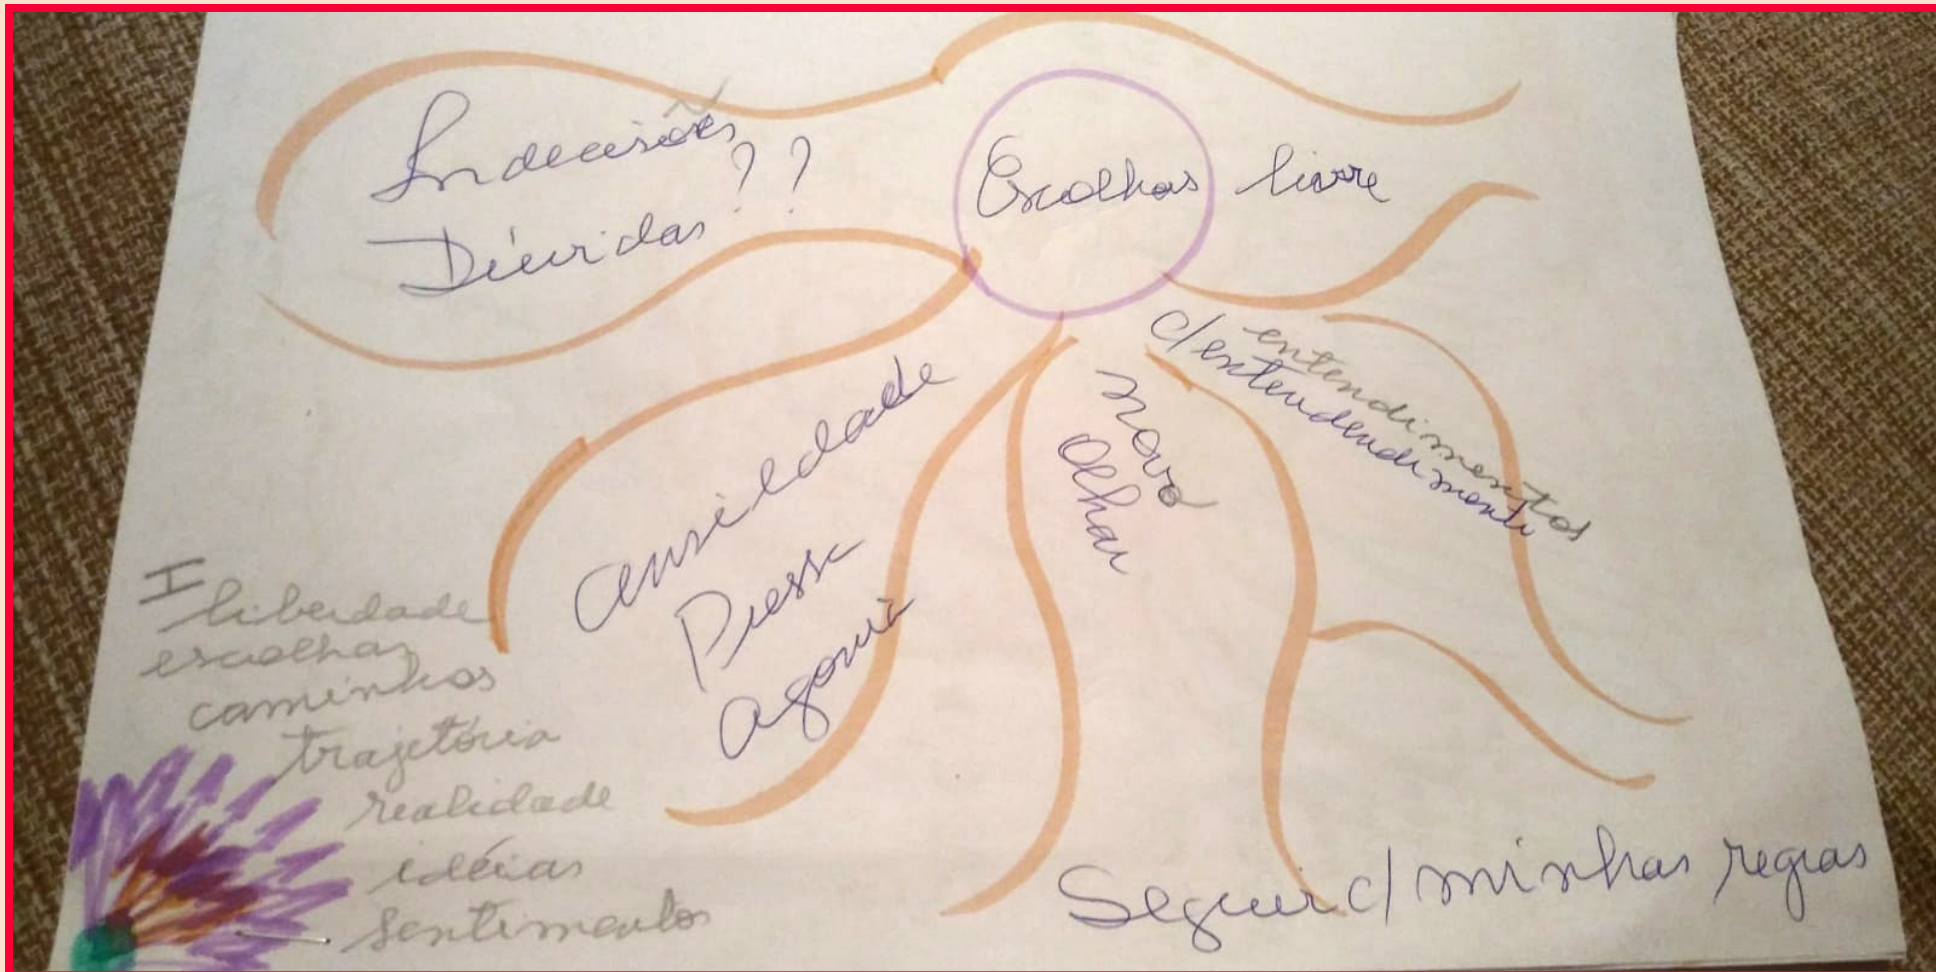 Indecisões
Dúvidas ??
Escolhas livre
c/ entendendimento
entendimentos
novo
olhar
ansildade
Pressa
agonia
I
liberdade
escolhas
caminhos
trajetória
realidade
idéias
sentimentos
Seguir c/ minhas regras